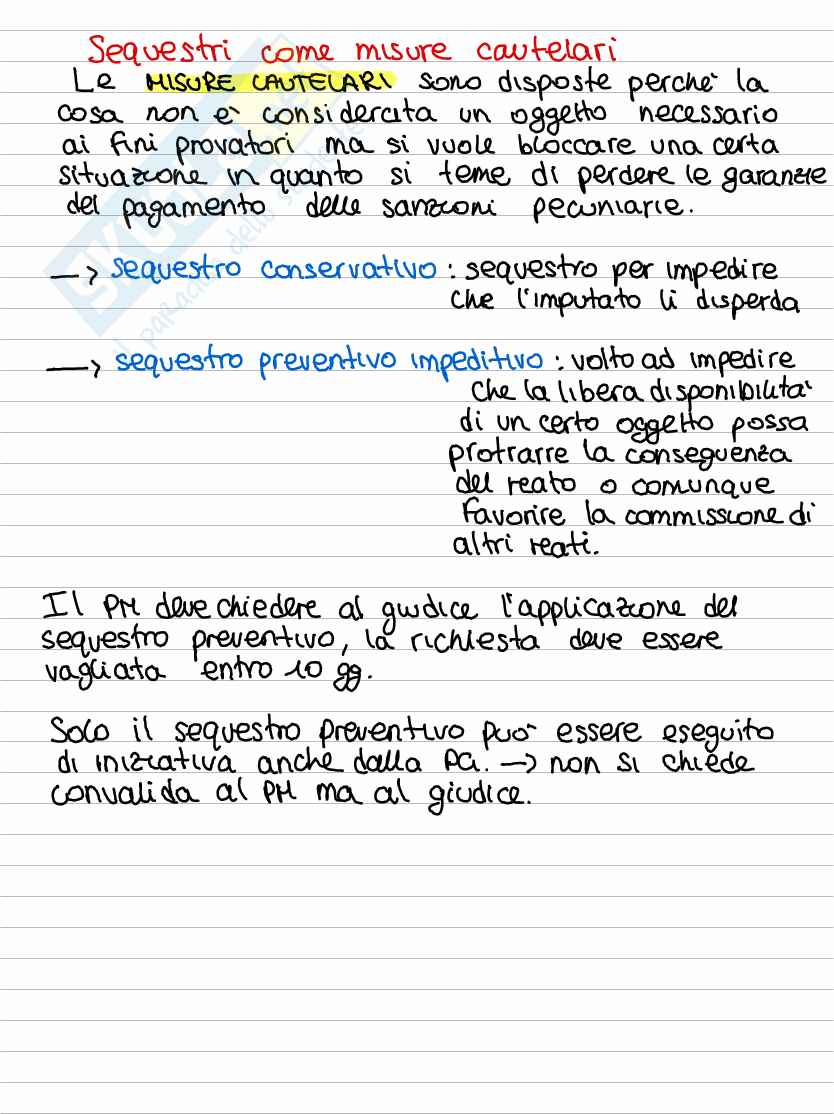 Sequestri come misure cautelari
Le MISURE CAUTELARI sono disposte perchè la
cosa non è considerata un oggetto necessario
ai fini provatori ma si vuole bloccare una certa
situazione in quanto si teme di perdere le garanzie
del pagamento delle sanzioni pecuniarie.
—> sequestro conservativo : sequestro per impedire
che l'imputato li disperda
—> sequestro preventivo impeditivo : volto ad impedire
che la libera disponibilità
di un certo oggetto possa
protrarre la conseguenza
del reato o comunque
favorire la commissione di
altri reati.
Il PM deve chiedere al giudice l'applicazione del
sequestro preventivo, la richiesta deve essere
vagliata entro 10 gg.
Solo il sequestro preventivo può essere eseguito
di iniziativa anche dalla PG. —> non si chiede
convalida al PM ma al giudice.